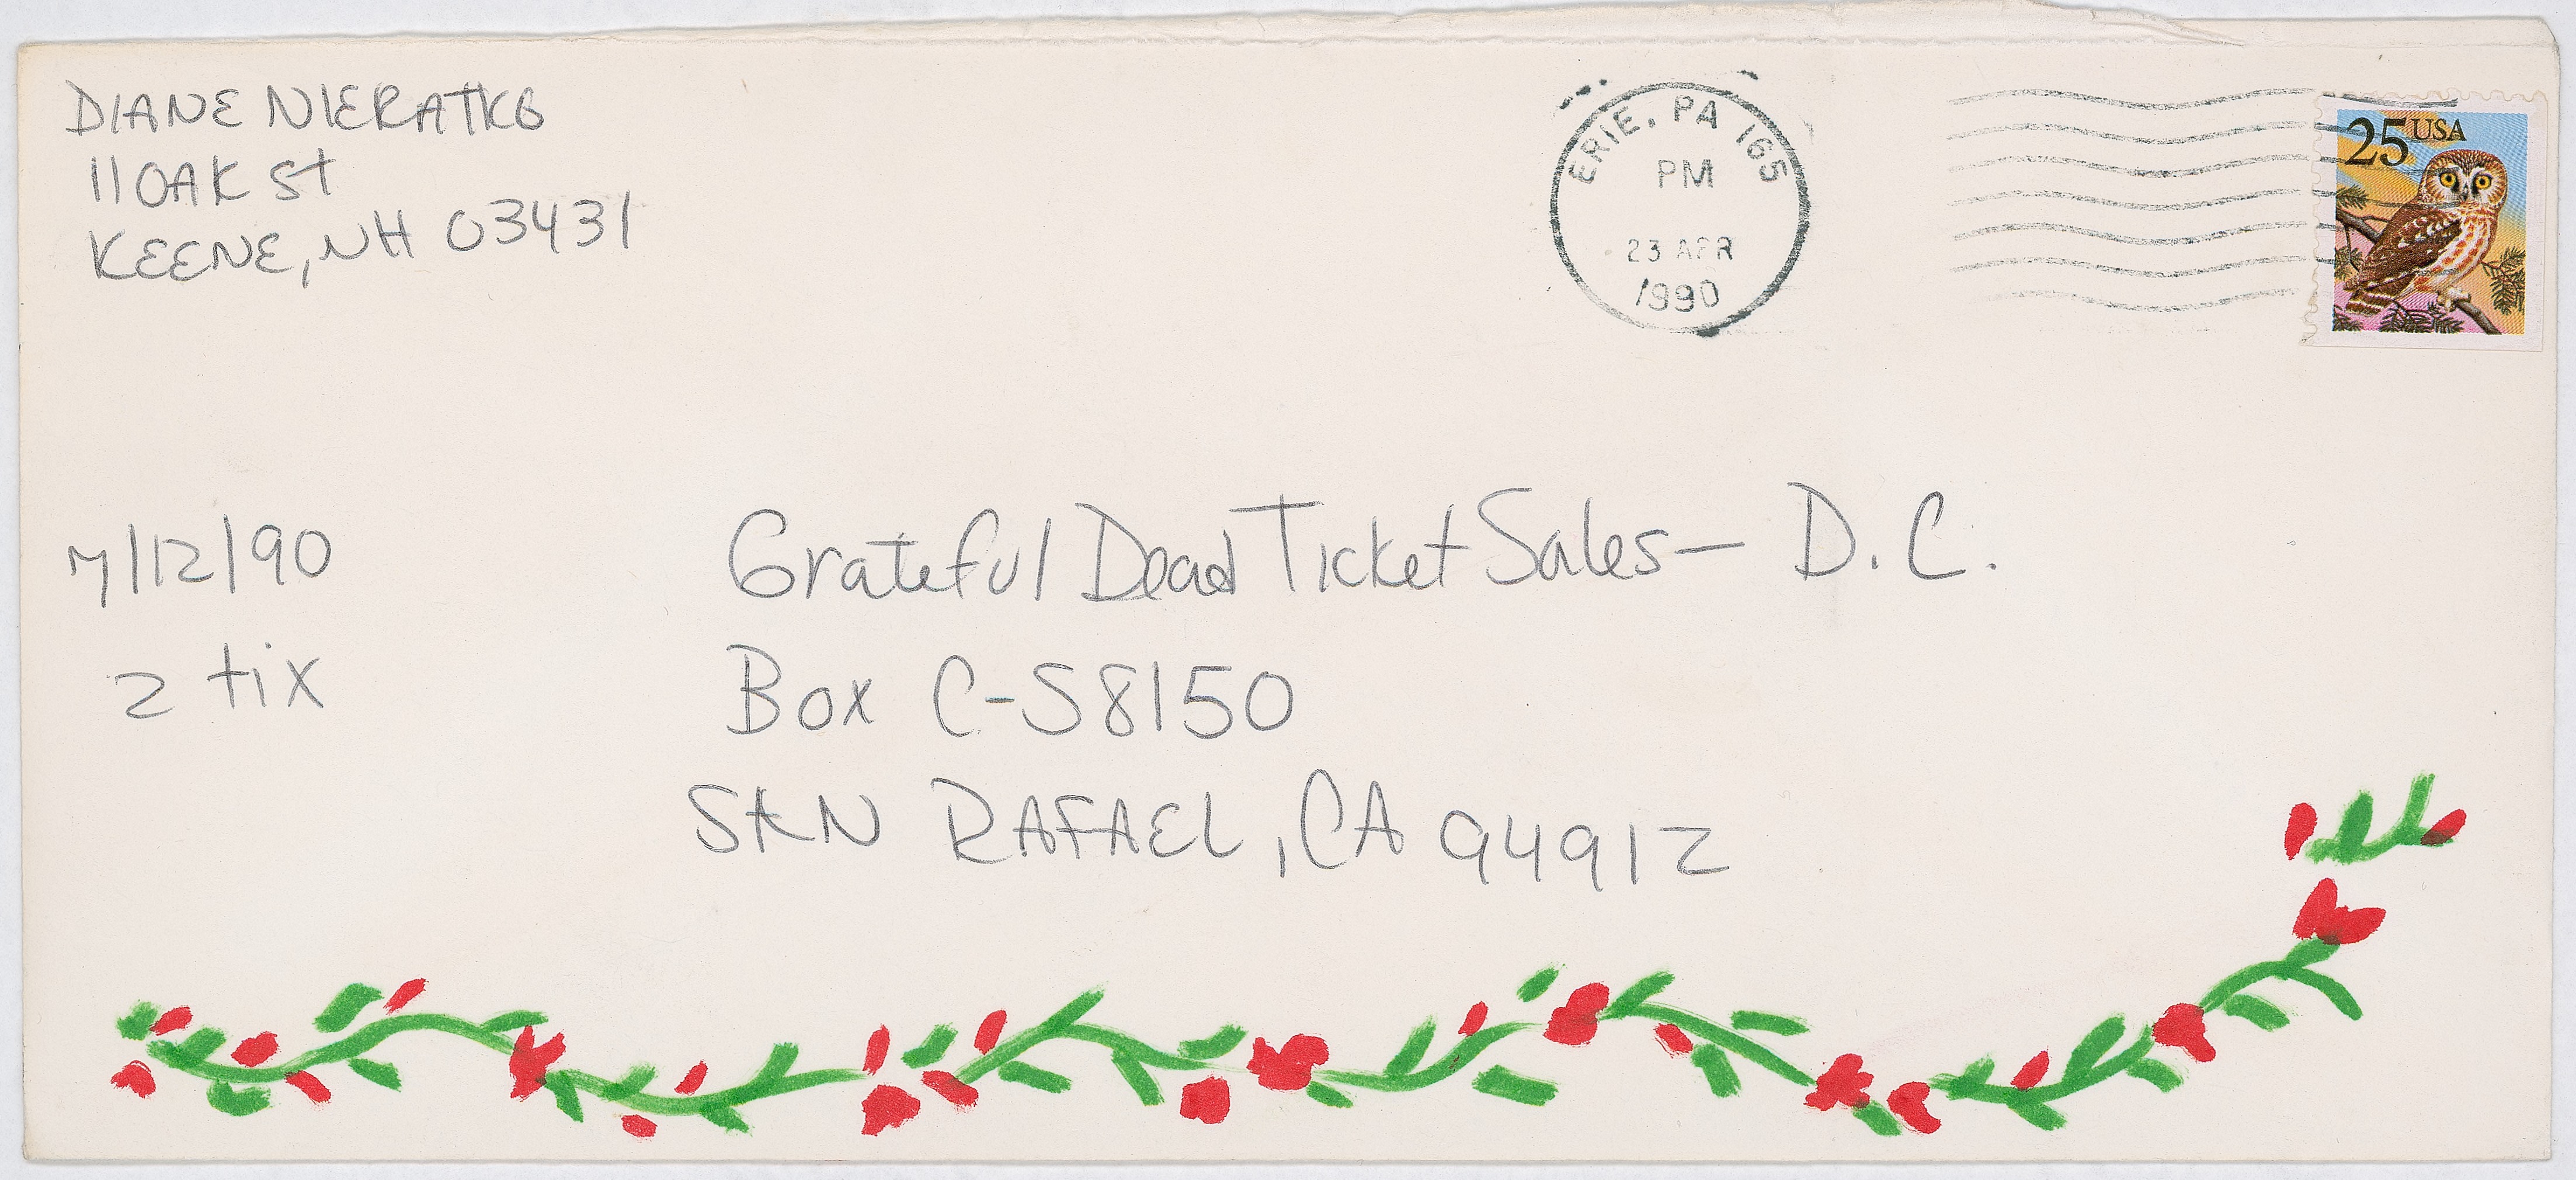 DIANE NIERATKO
11 OAK St
KEENE, NH 03431
ERIE, PA 165
PM
23 APR
1990
25 USA
7/12/90
2 tix
Grateful Dead Ticket Sales— D.C.
Box C-S8150
SAN RAFAEL, CA 94912